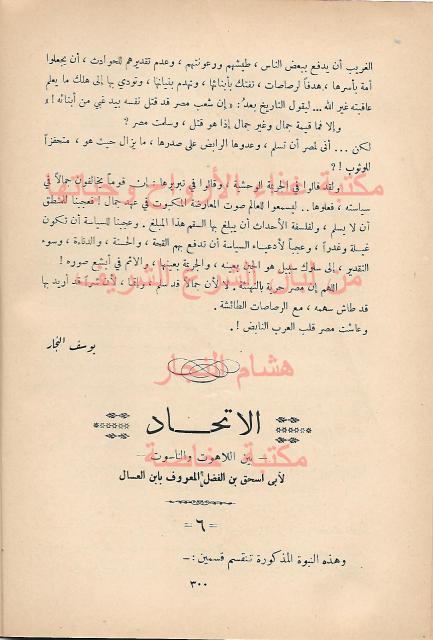 الغريب أن يدفع ببعض الناس ، طيشهم ورعونتهم ، وعدم تقديرهم للحوادث ، أن يجعلوا
أمة بأسرها ، هدفاً لرصاصات ، تفتك بأبنائها ، وتهدم بنيانها ، وتودي بها إلى هلك ما يعلم
عاقبته غير الله ... ليقول التاريخ بعد : « إن شعب مصر قد قتل نفسه بيد غبي من أبنائه ! »
وإلا فما قيمة جمال وغير جمال إذا هو قتل ، وسلمت مصر ؟
لكن ... أنى لمصر أن تسلم ، وعدوها الرابض على صدرها ، ما يزال حيث هو ، متحفزاً
للوثوب ! ؟
ولقد قالوا في الجريمة الوحشية ، وقالوا في تبريرها : إن قوماً يخالفون جمالاً في
سياسته ، فعلوها .. ليسمعوا للعالم صوت المعارضة المكبوت في عهد جمال ! فعجبنا للمنطق
أن لا يسلم ، ولفلسفة الأحداث أن يبلغ بها السقم هذا المبلغ . وعجبنا للسياسة أن تكون
غيلة وغدراً ، وعجباً لأدعياء السياسة أن تدفع بهم القحة ، والخسة ، والدناءة ، وسوء
التقدير ، إلى سلوك سبيل هو الجبن بعينه ، والجريمة بعينها ، والاثم في أبشع صوره !
اللهم إن مصر حرية بالتهنئة ، لا لأن جمالاً قد سلم ، لأن شراً قد أريد بها
قد طاش سهمه ، مع الرصاصات الطائشة .
وعاشت مصر قلب العرب النابض ! .
يوسف النجار
الاتحاد
– بين اللاهوت والناسوت –
لأبى اسحق بن الفضل المعروف بابن العسال
= ٦ =
وهذه النبوة المذكورة تنقسم قسمين :–
٣٠٠
مكتبة غذاء الأرواح
من لبان الشرع الشريف
هشام النجار
مكتبة خاصة